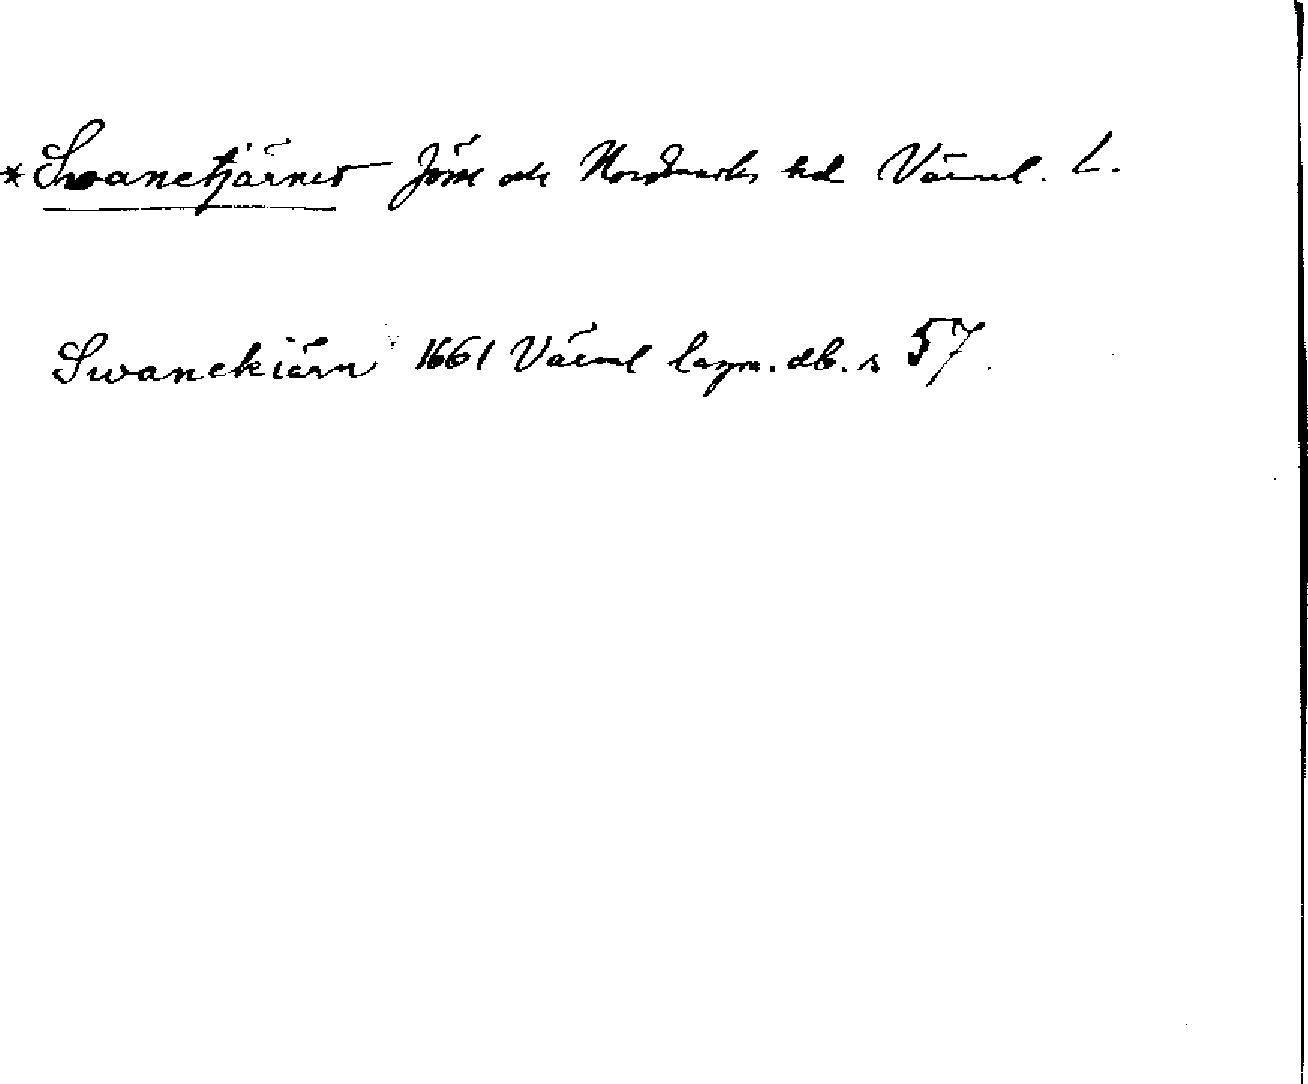 * Svanetjärnet Jöss och Nordmarks hd Värml. L.
Swanekiärn 1661 Värml lagm. db. s 57.